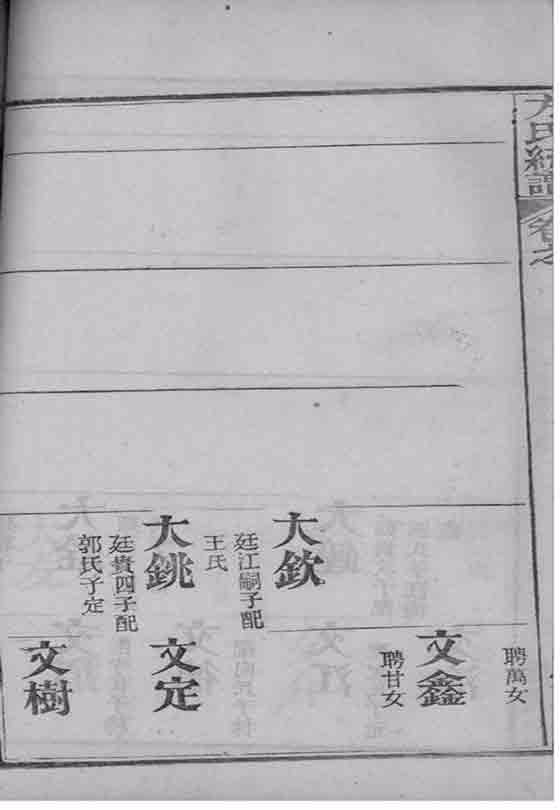 方氏統譜
卷之
聘萬女
文鑫
聘甘女
大欽
廷江嗣子配
王氏
大銚
廷貴四子配
郭氏子定
文定
文樹